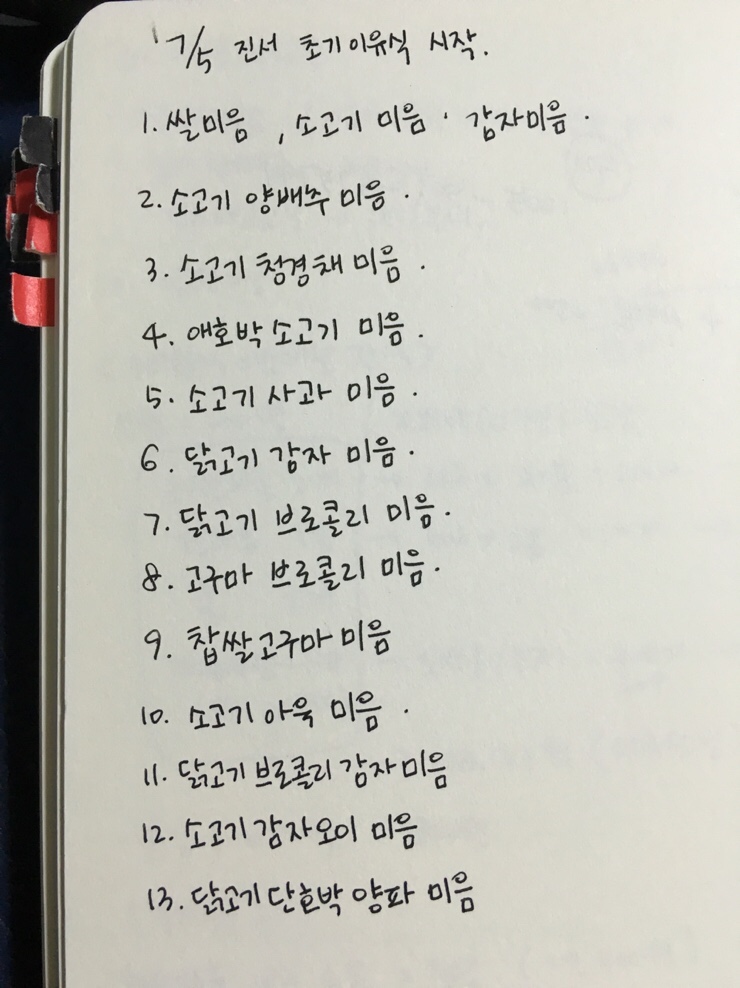 7/5 진서 초기이유식 시작.
1. 쌀미음 , 소고기 미음 · 감자미음 ·
2. 소고기 양배추 미음 ·
3. 소고기 청경채 미음 .
4. 애호박소고기 미음 .
5. 소고기 사과 미음 .
6. 닭고기 감자 미음 .
7. 닭고기 브로콜리 미음 .
8. 고구마 브로콜리 미음 .
9. 찹쌀고구마 미음
10. 소고기 아욱 미음 .
11. 닭고기 브로콜리 감자미음
12. 소고기감자오이 미음
13. 닭고기단호박 양파 미음